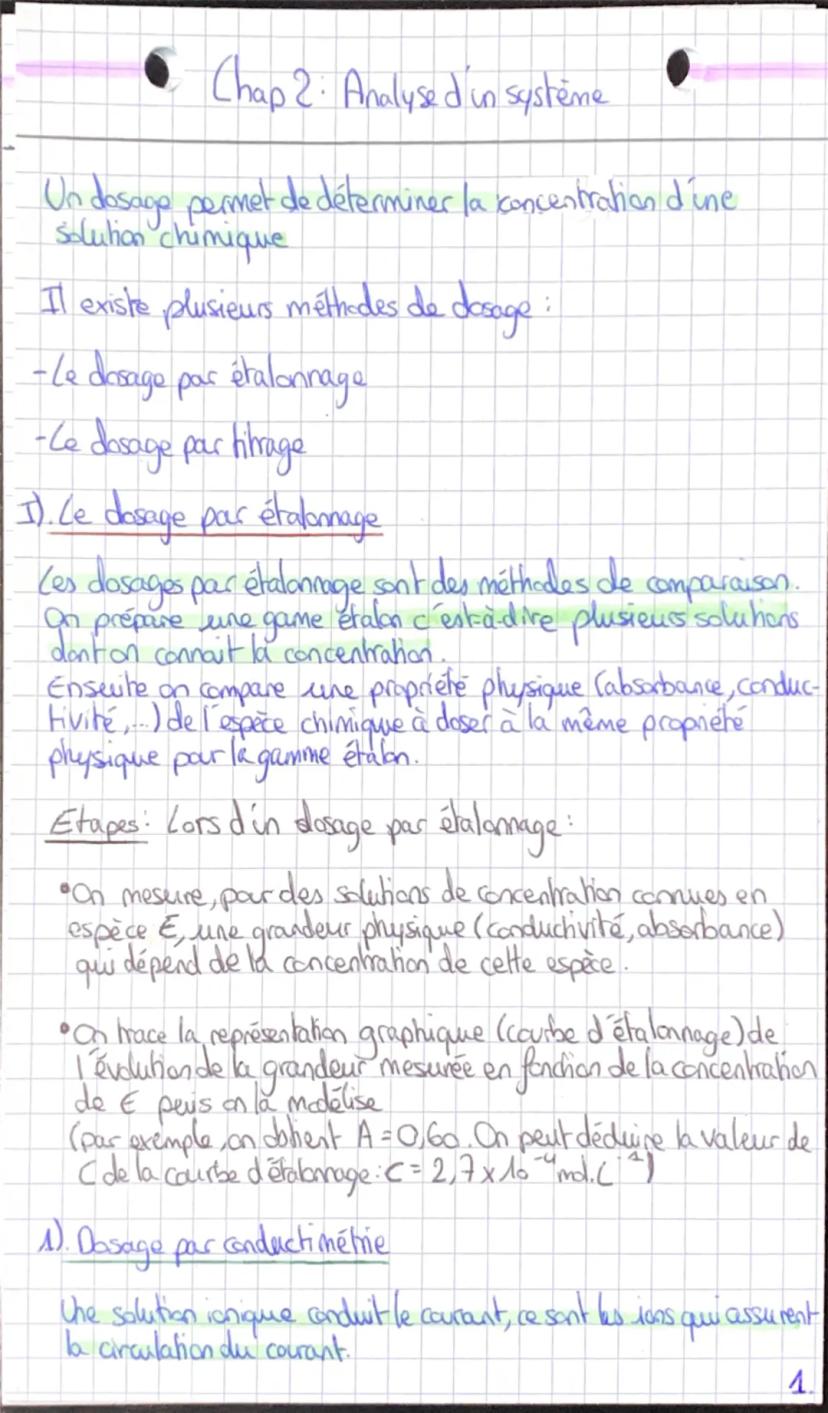 Chap 2: Analyse d'un système
Un dosage permet de déterminer la concentration d'une
solution chimique
Il existe plusieurs méthodes de dosage :
-Le dosage par étalonnage
-Le dosage par titrage
I). Le dosage par étalonnage
Les dosages par étalonnage sont des méthodes de comparaison.
On prépare une game étalon c'est-à-dire plusieurs solutions
dont on connait la concentration.
Ensuite on compare une propriété physique (absorbance, conduc-
tivité,...) de l'espèce chimique à doser à la même propriété
physique pour la gamme étalon.
Etapes: Lors d'un dosage par étalonnage :
•On mesure, pour des solutions de concentration connues en
espèce E, une grandeur physique (conductivité, absorbance)
qui dépend de la concentration de cette espèce.
•On trace la représentation graphique (courbe d'étalonnage) de
l'évolution de la grandeur mesurée en fonction de la concentration
de E puis on la modélise
(par exemple, on obtient A = 0,60. On peut déduire la valeur de
C de la courbe d'étalonnage : C = 2,7 x 10⁻⁴ mol.L⁻¹)
1). Dosage par conductimétrie
Une solution ionique conduit le courant, ce sont les ions qui assurent
la circulation du courant.
1.